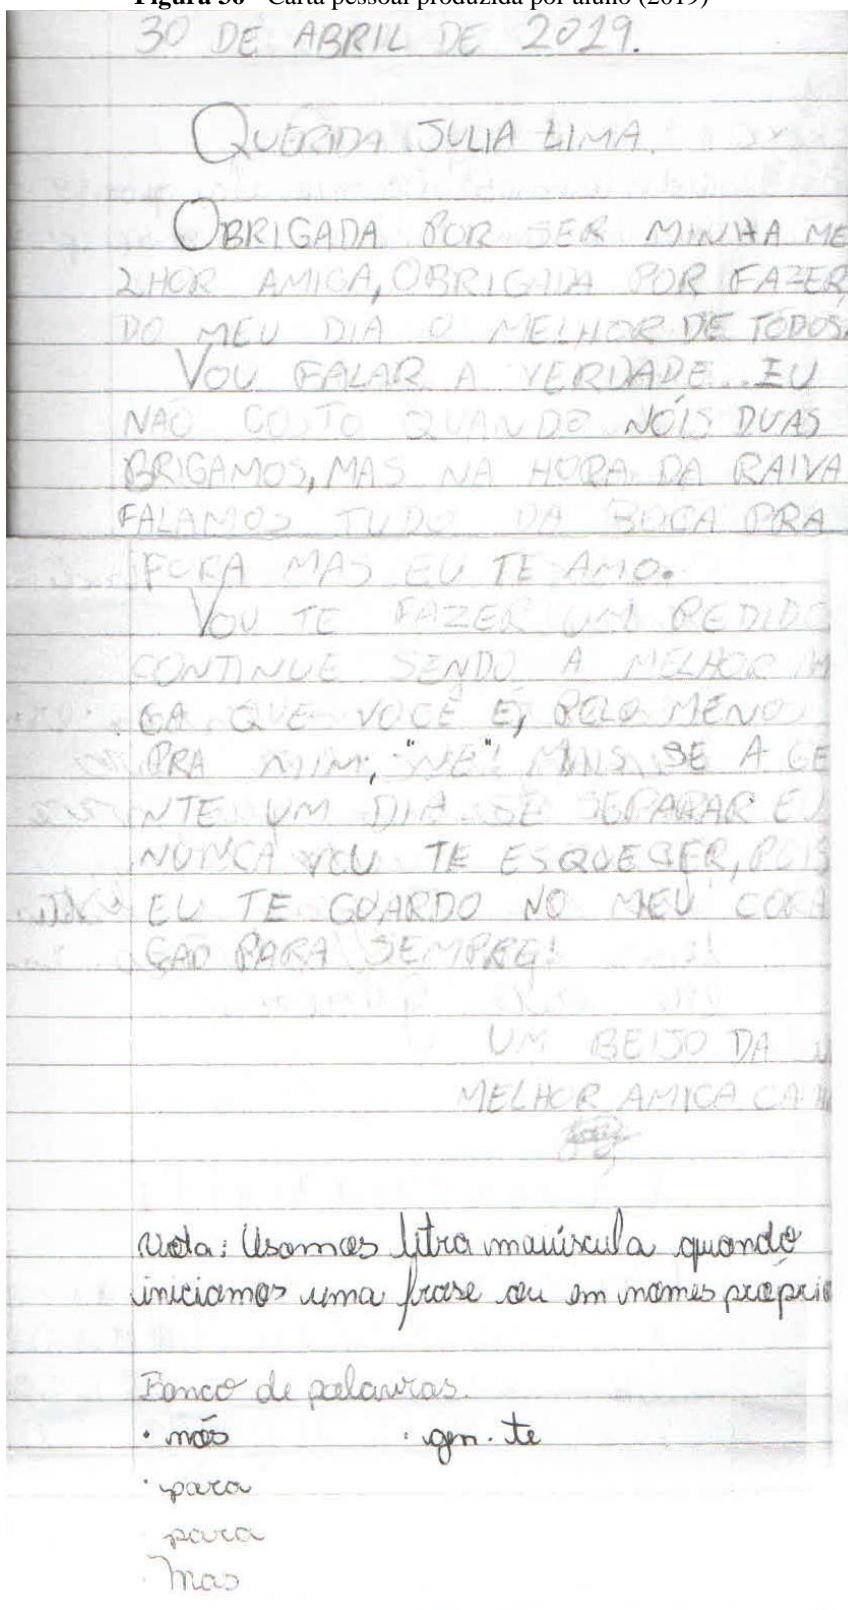 Figura 36 - Carta pessoal produzida por aluno (2019)
30 DE ABRIL DE 2019.
QUERIDA JULIA LIMA.
OBRIGADA POR SER MINHA ME
LHOR AMIGA, OBRIGADA POR FAZER
DO MEU DIA O MELHOR DE TODOS.
VOU FALAR A VERDADE... EU
NÃO GOSTO QUANDO NÓIS DUAS
BRIGAMOS, MAS NA HORA DA RAIVA
FALAMOS TUDO DA BOCA PRA
FORA MAS EU TE AMO.
VOU TE FAZER UM PEDIDO
CONTINUE SENDO A MELHOR
GA QUE VOCÊ É, PELO MENO
PRA MIM, "NÉ"! MAIS SE A GE
NTE UM DIA SE SEPARAR EU
NUNCA VOU TE ESQUESER, POIS
EU TE GUARDO NO MEU CORA
ÇÃO PARA SEMPRE!
UM BEIJO DA
MELHOR AMIGA
Nota: Usamos letra maiúscula quando
iniciamos uma frase ou em nomes próprio
Banco de palavras.
• nós • gen-te
• para
para
• Mas